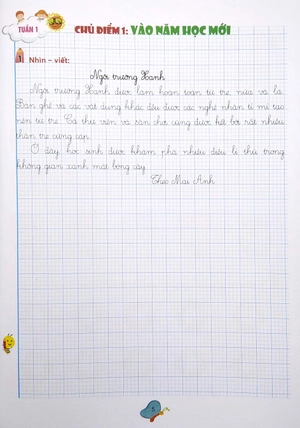 TUẦN 1
CHỦ ĐIỂM 1: VÀO NĂM HỌC MỚI
1 Nhìn – viết:
Ngôi trường Xanh
Ngôi trường Xanh được làm hoàn toàn từ tre, nứa và lá.
Bàn ghế và các vật dụng khác đều được các nghệ nhân tỉ mỉ tạo
nên từ tre. Cả thư viện và sân chơi cũng được kết bởi rất nhiều
thân tre cứng cáp.
Ở đây, học sinh được khám phá nhiều điều lí thú trong
không gian xanh mát bóng cây.
Theo Mai Anh
5